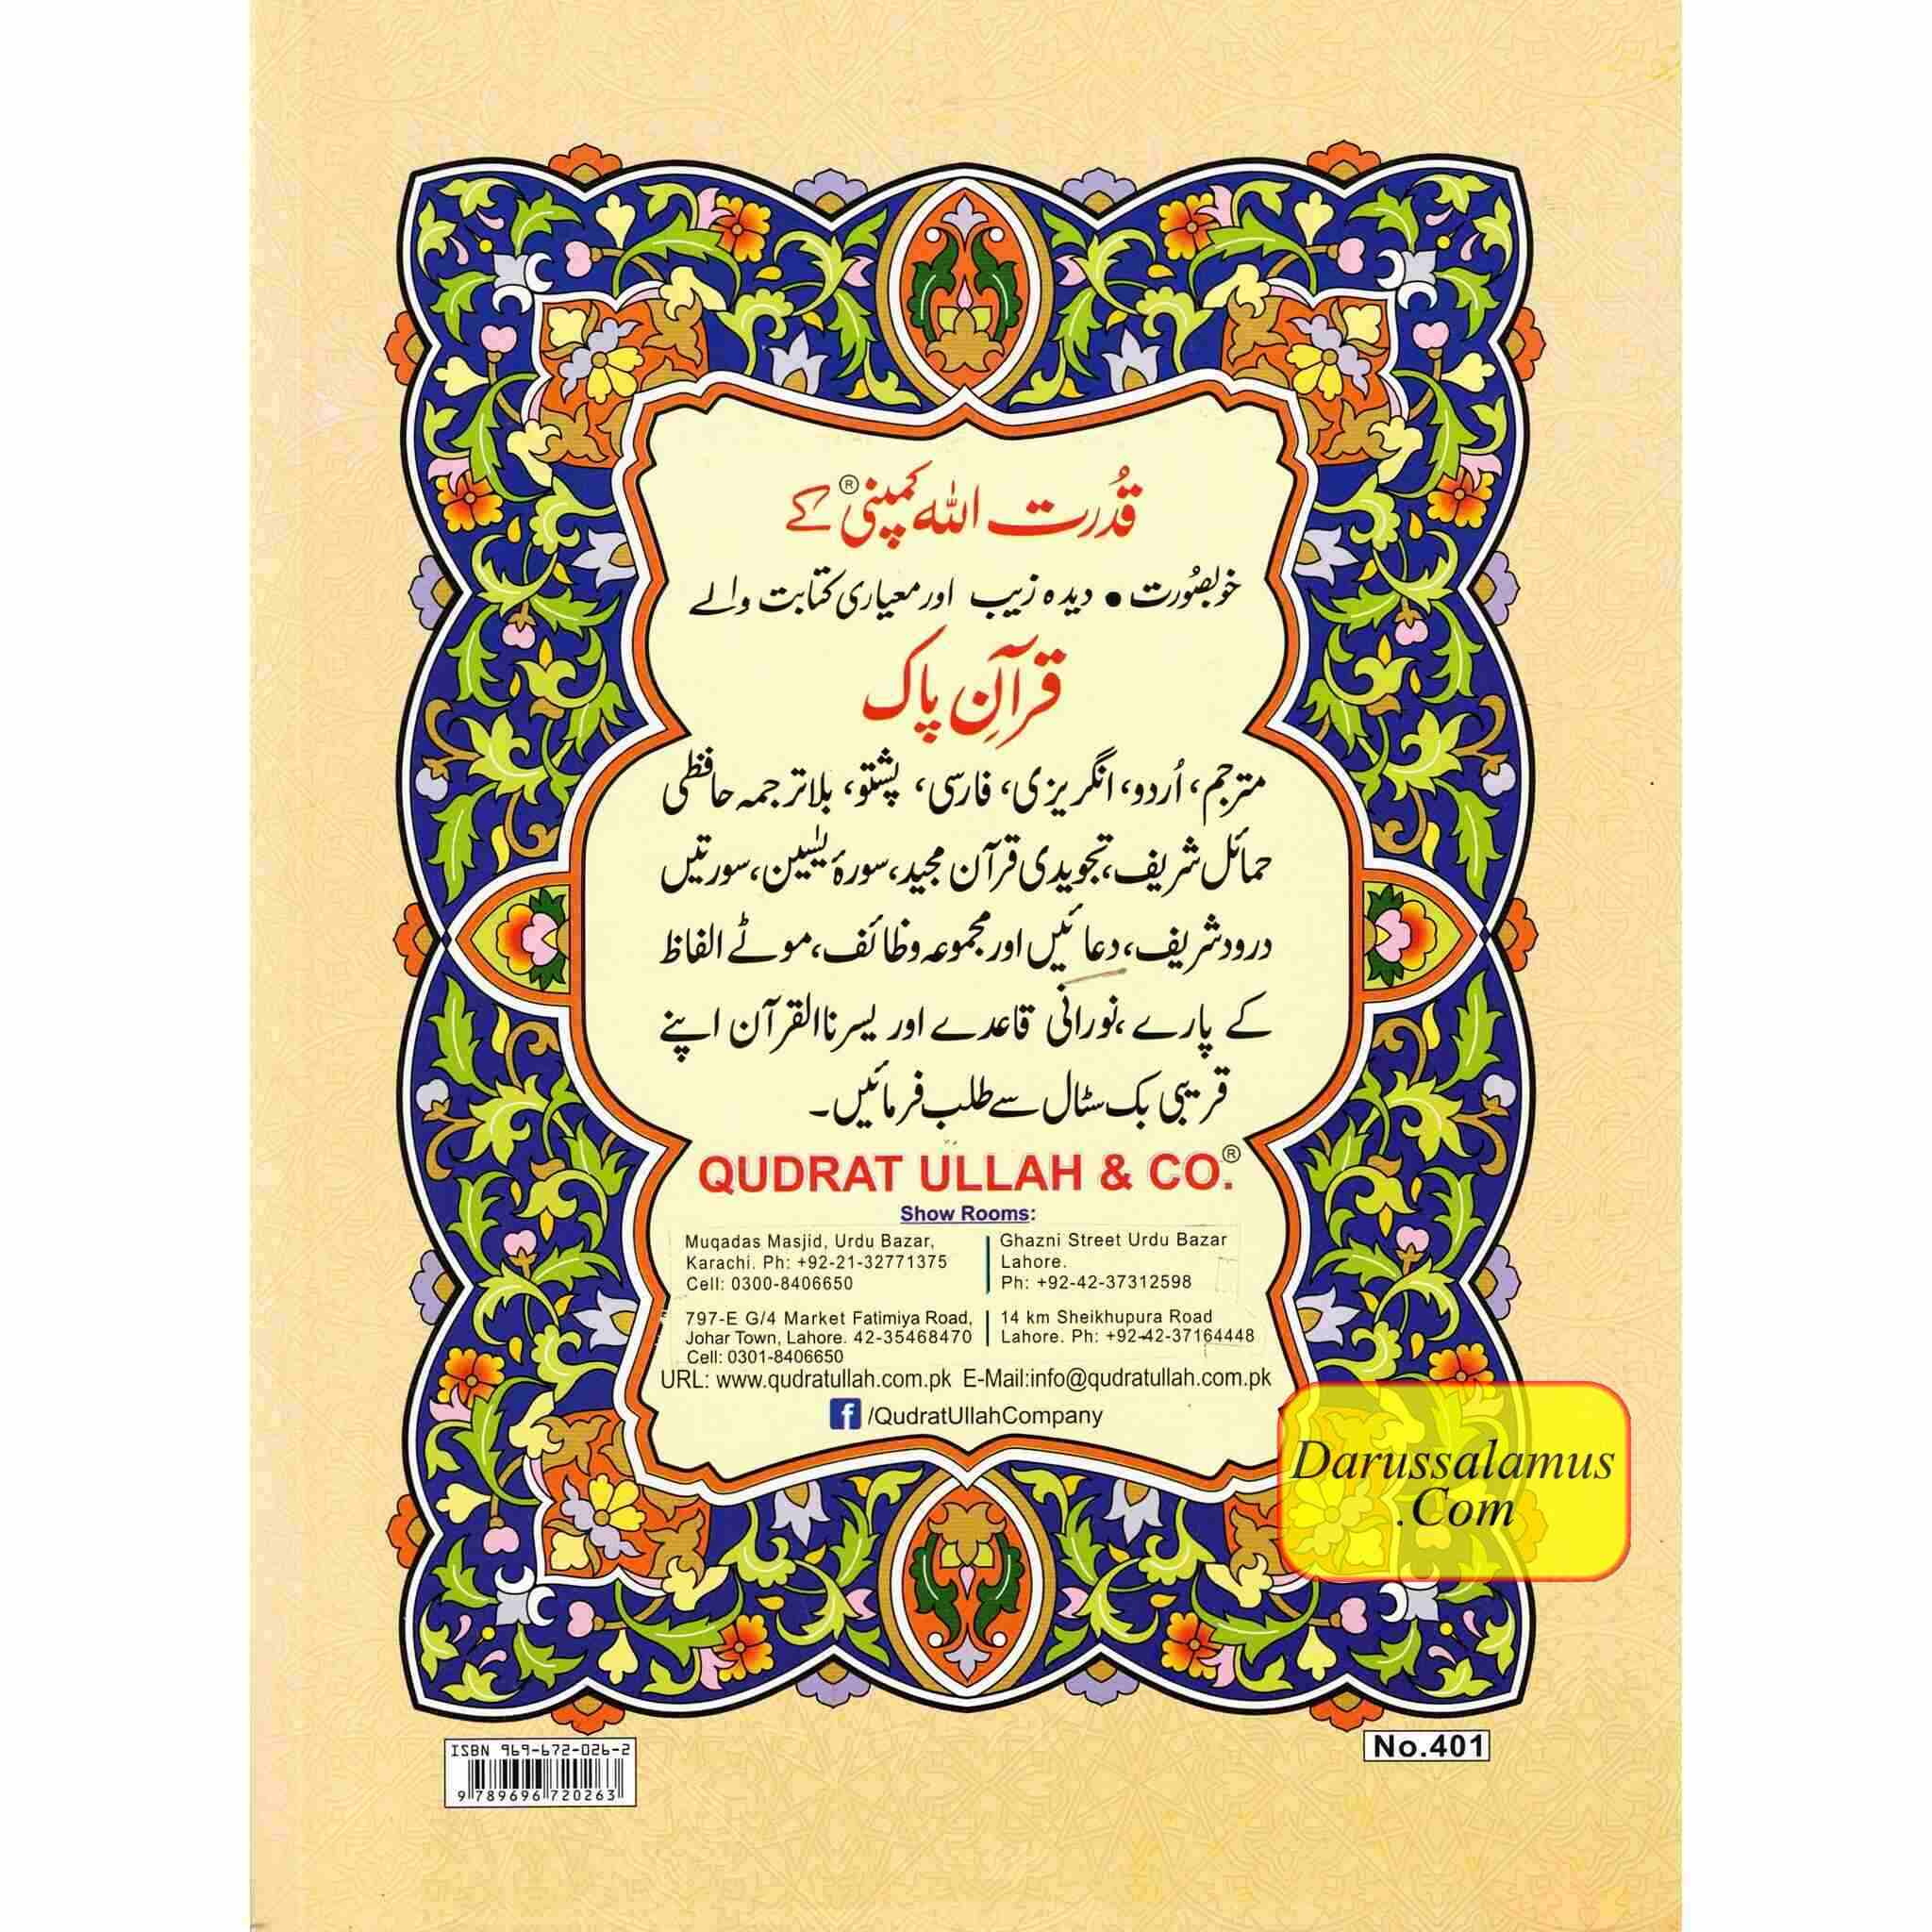 قُدرت اللہ کمپنی® کے
خوبصُورت • دیدہ زیب اور معیاری کتابت والے
قرآنِ پاک
مترجم، اُردو، انگریزی، فارسی، پشتو، بلاترجمہ حافظی
حمائل شریف، تجویدی قرآن مجید، سورۂ یٰسین، سورتیں
درود شریف، دعائیں اور مجموعہ وظائف، موٹے الفاظ
کے پارے، نورانی قاعدے اور یسرنا القرآن اپنے
قریبی بک سٹال سے طلب فرمائیں۔
QUDRAT ULLAH & CO.®
Show Rooms:
Muqadas Masjid, Urdu Bazar,
Karachi. Ph: +92-21-32771375
Cell: 0300-8406650
Ghazni Street Urdu Bazar
Lahore.
Ph: +92-42-37312598
797-E G/4 Market Fatimiya Road,
Johar Town, Lahore. 42-35468470
Cell: 0301-8406650
14 km Sheikhupura Road
Lahore. Ph: +92-42-37164448
URL: www.qudratullah.com.pk E-Mail:info@qudratullah.com.pk
f /QudratUllahCompany
Darussalamus
.Com
ISBN 969-672-026-2
9 789696 720263
No.401